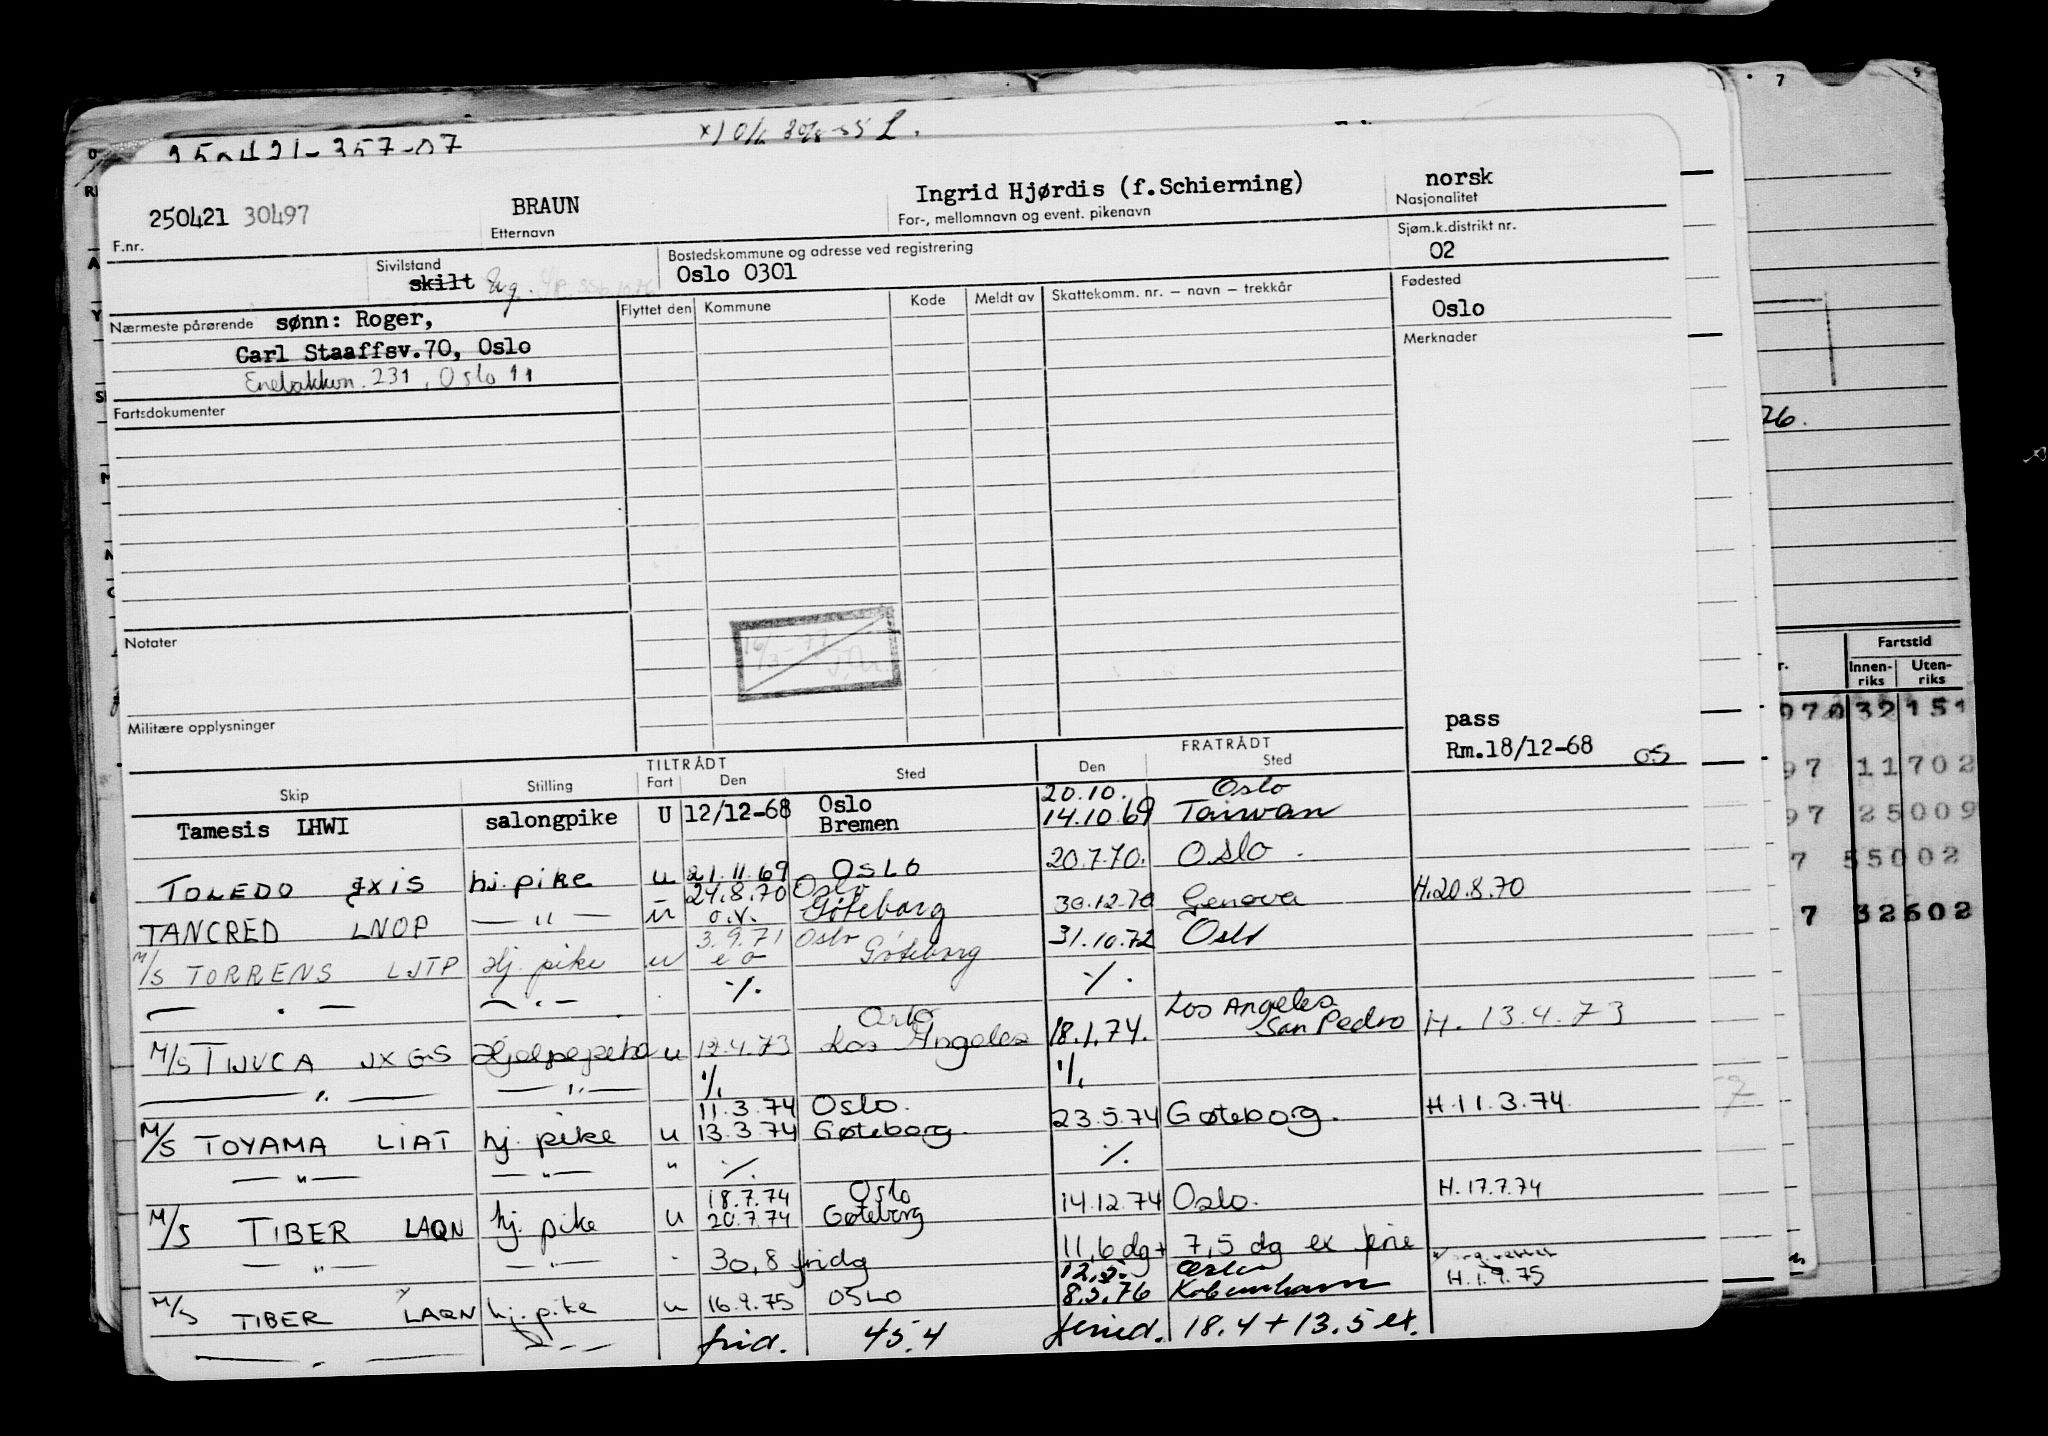 250421-357-07
250421 30497 BRAUN Ingrid Hjørdis (f.Schierning) norsk
F.nr. Etternavn For-, mellomnavn og event. pikenavn Nasjonalitet
Sivilstand Bostedskommune og adresse ved registrering Sjøm.k.distrikt nr.
skilt Oslo 0301 02
Nærmeste pårørende sønn: Roger, Flyttet den Kommune Kode Meldt av Skattekomm. nr. – navn – trekkår Fødested
Oslo
Carl Staaffsv.70, Oslo Merknader
Enebakkvn. 231, Oslo 11
Fartsdokumenter
Notater
16/3-77
Militære opplysninger
pass
Rm.18/12-68 05
TILTRÅDT FRATRÅDT
Skip Stilling Fart Den Sted Den Sted
Tamesis LHWI salongpike U 12/12-68 Oslo Bremen 20.10. Oslo
14.10.69 Taiwan
TOLEDO JXIS hj.pike u 21.11.69 OSLO 20.7.70. Oslo.
TANCRED LNOP — " — u 24.8.70 Oslo
o.v. Göteborg 30.12.70 Genova H.20.8.70
M/S TORRENS LJTP Hj. pike u 3.9.71 Oslo
e o Göteborg 31.10.72 Oslo
— . — — . — ./. ./.
M/S TIJUCA JXGS u 12.4.73 Oslo
Los Angeles 18.1.74. Los Angeles
San Pedro H. 13.4.73
— " — — " — ./. ./.
M/S TOYAMA LIAT hj. pike u 11.3.74 Oslo.
13.3.74 Gøteborg. 23.5.74 Gøteborg. H.11.3.74.
— " — — " — " ./. ./.
M/S TIBER LAQN hj. pike u 18.7.74 Oslo
20.7.74 Gøteborg 14.12.74 Oslo. H.17.7.74
— " — — " — 30,8 fridg 11,6 dg + 7,5 dg ex ferie
M/S TIBER LAQN hj.pike u 16.9.75 OSLO 12.2. Oslo
8.2.76 København H.1.9.75
— " — frid. 45.4 feried. 18.4 + 13.5 ex.
7
76.
Fartstid
Innen-riks Uten-riks
970 32 151
97 11 702
97 25 009
7 55 002
7 32 602